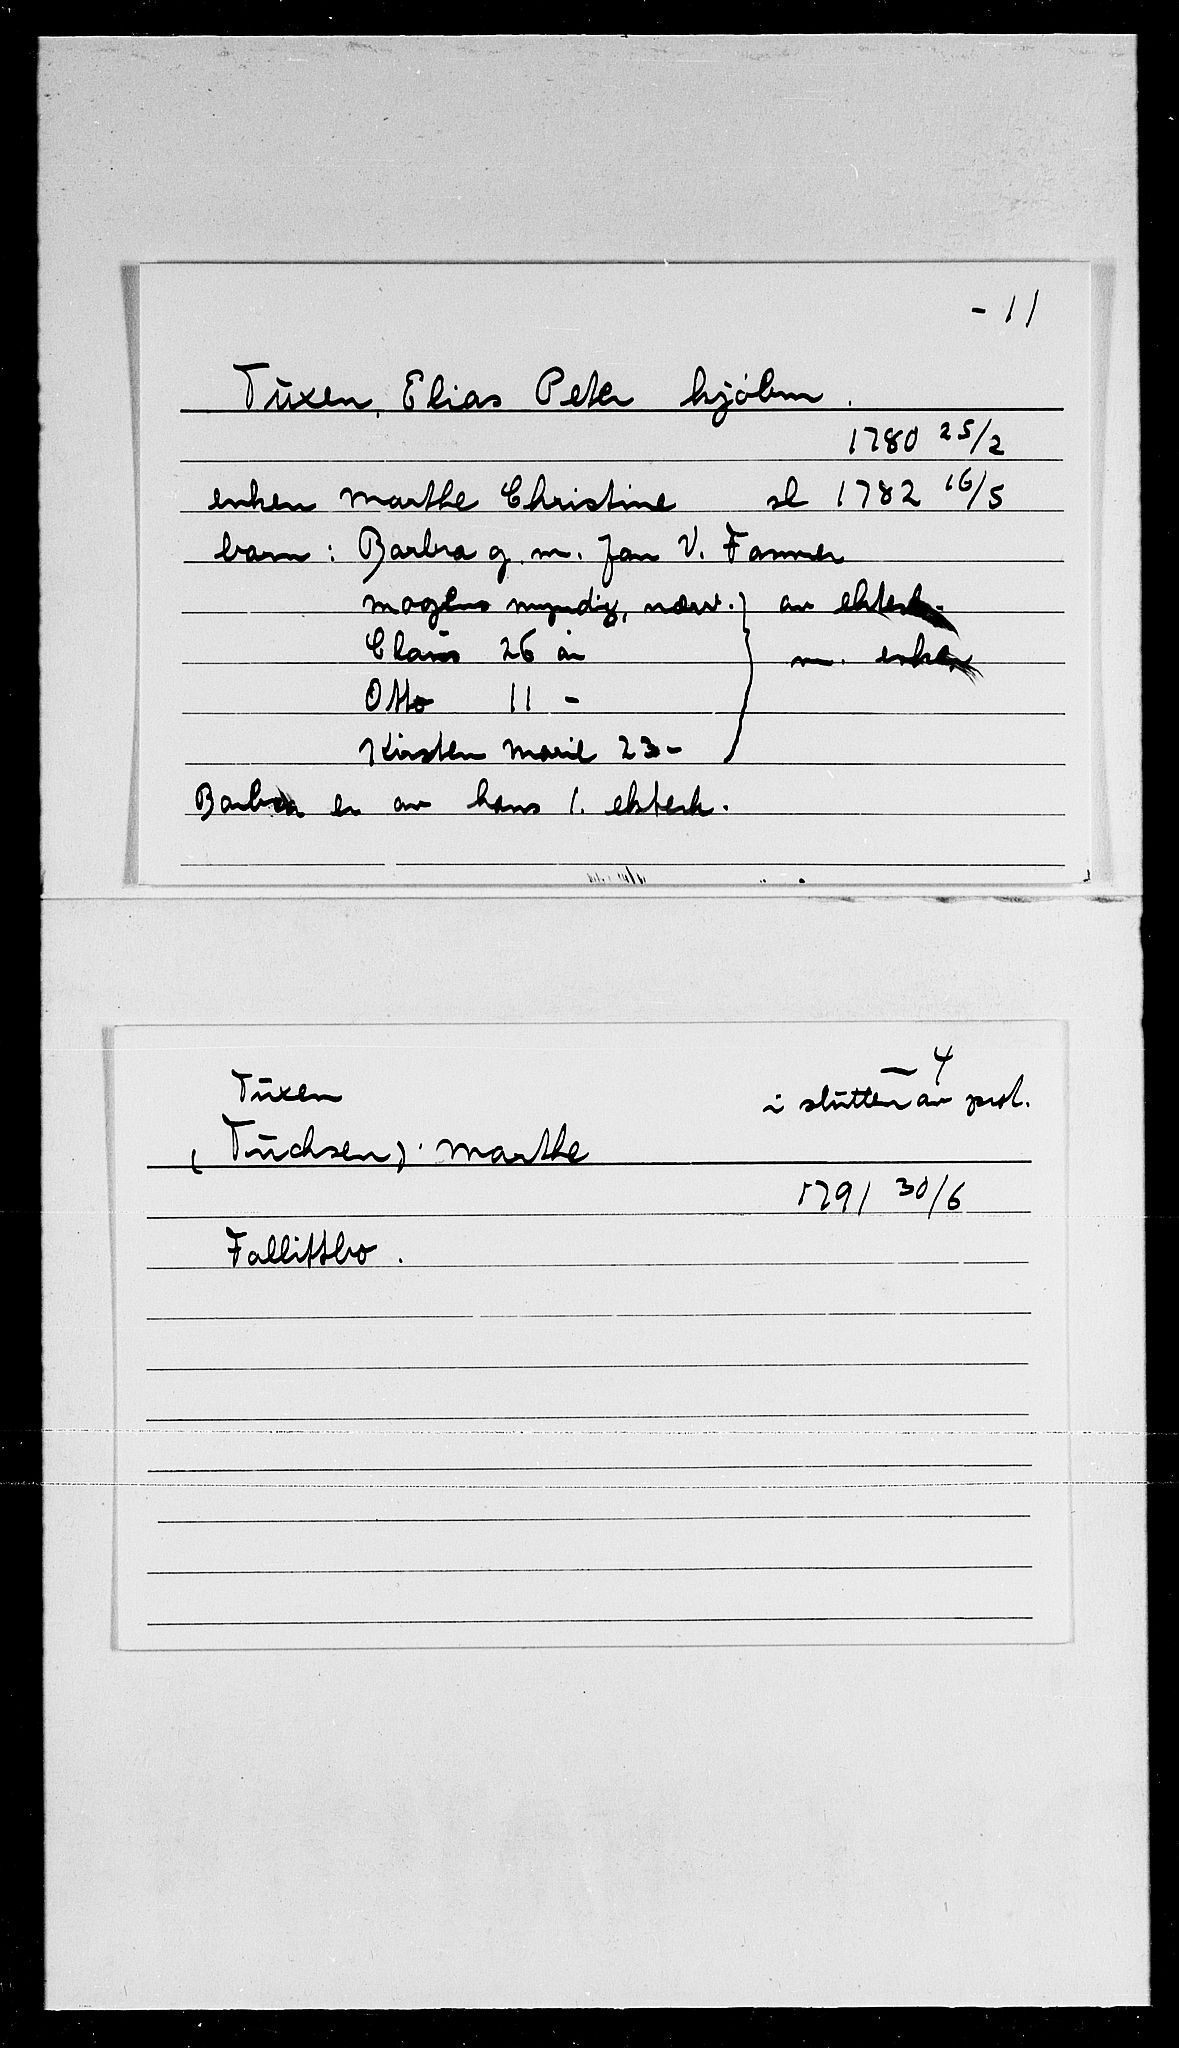 - 11
Tuxen, Elias Peter kjøbm.
1780 25/2
enken Marthe Christine sl 1782 16/5
barn: Barbra g. m. Jan V. Fanner
Mogens myndig, nærv. } av ektesk.
Claus 26 år m. enken
Otto 11 -
Kirsten Marie 23 -
Barbra er av hans 1. ektesk.
— 4
Tuxen i slutten av prot.
(Tuchsen). Marthe
1791 30/6
Fallittbo.